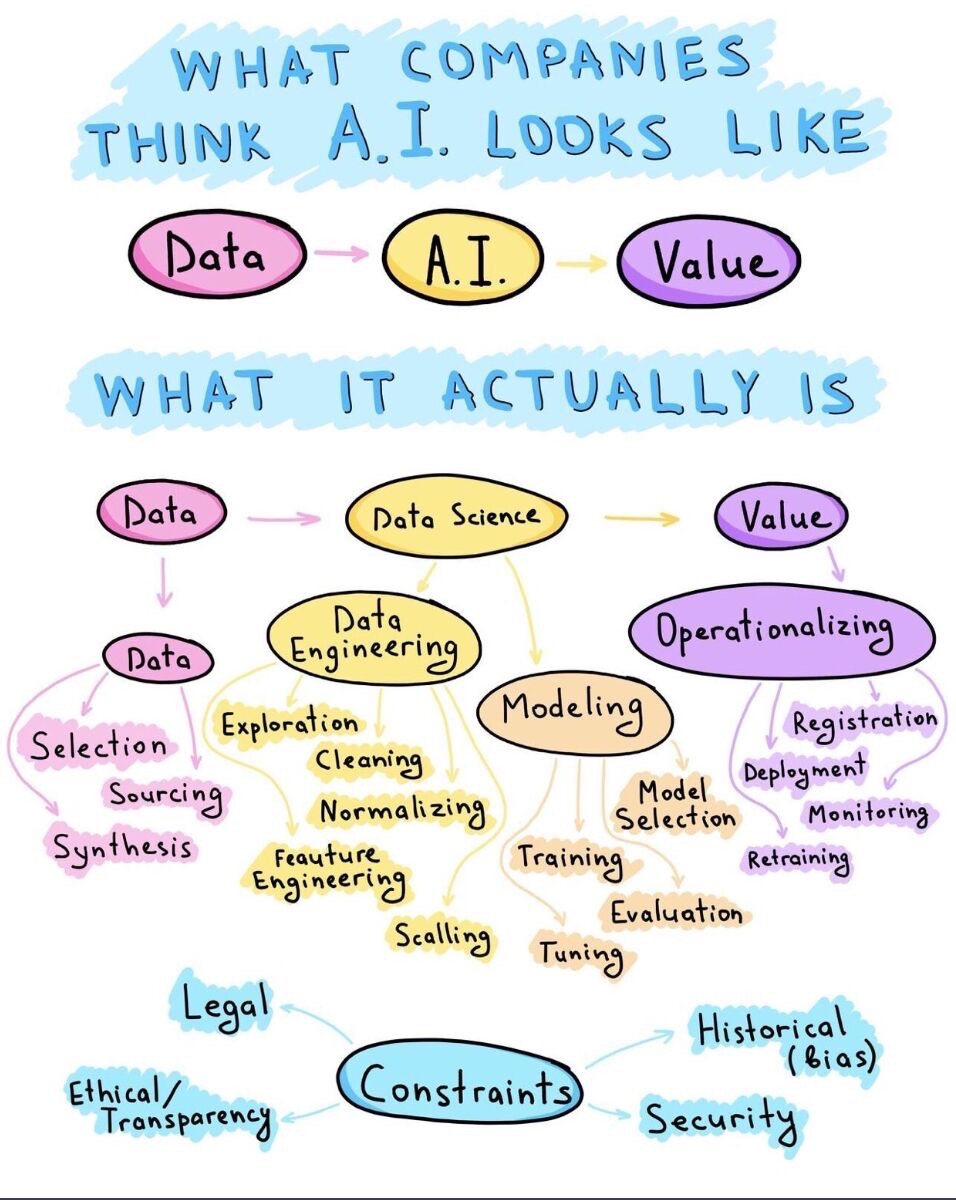 WHAT COMPANIES
THINK A.I. LOOKS LIKE
Data
A.I.
Value
WHAT IT ACTUALLY IS
Data
Data Science
Value
Data
Selection
Sourcing
Synthesis
Data
Engineering
Exploration
Cleaning
Normalizing
Feauture
Engineering
Scalling
Modeling
Model
Selection
Training
Evaluation
Tuning
Operationalizing
Registration
Deployment
Monitoring
Retraining
Constraints
Legal
Ethical/
Transparency
Historical
(Bias)
Security